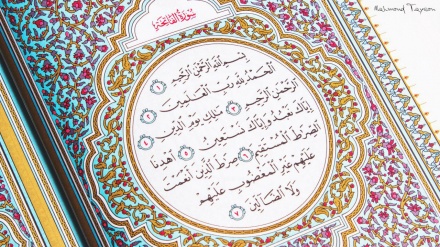 Mahmoud Tayson
سورة الفاتحة
بسم الله الرحمن الرحيم ١
الحمد لله رب العلمين ٢
الرحمن الرحيم ٣ ملك يوم الدين ٤
إياك نعبد وإياك نستعين ٥ اهدنا
الصرط المستقيم ٦ صرط الذين أنعمت
عليهم غير المغضوب عليهم
ولا الضالين ٧